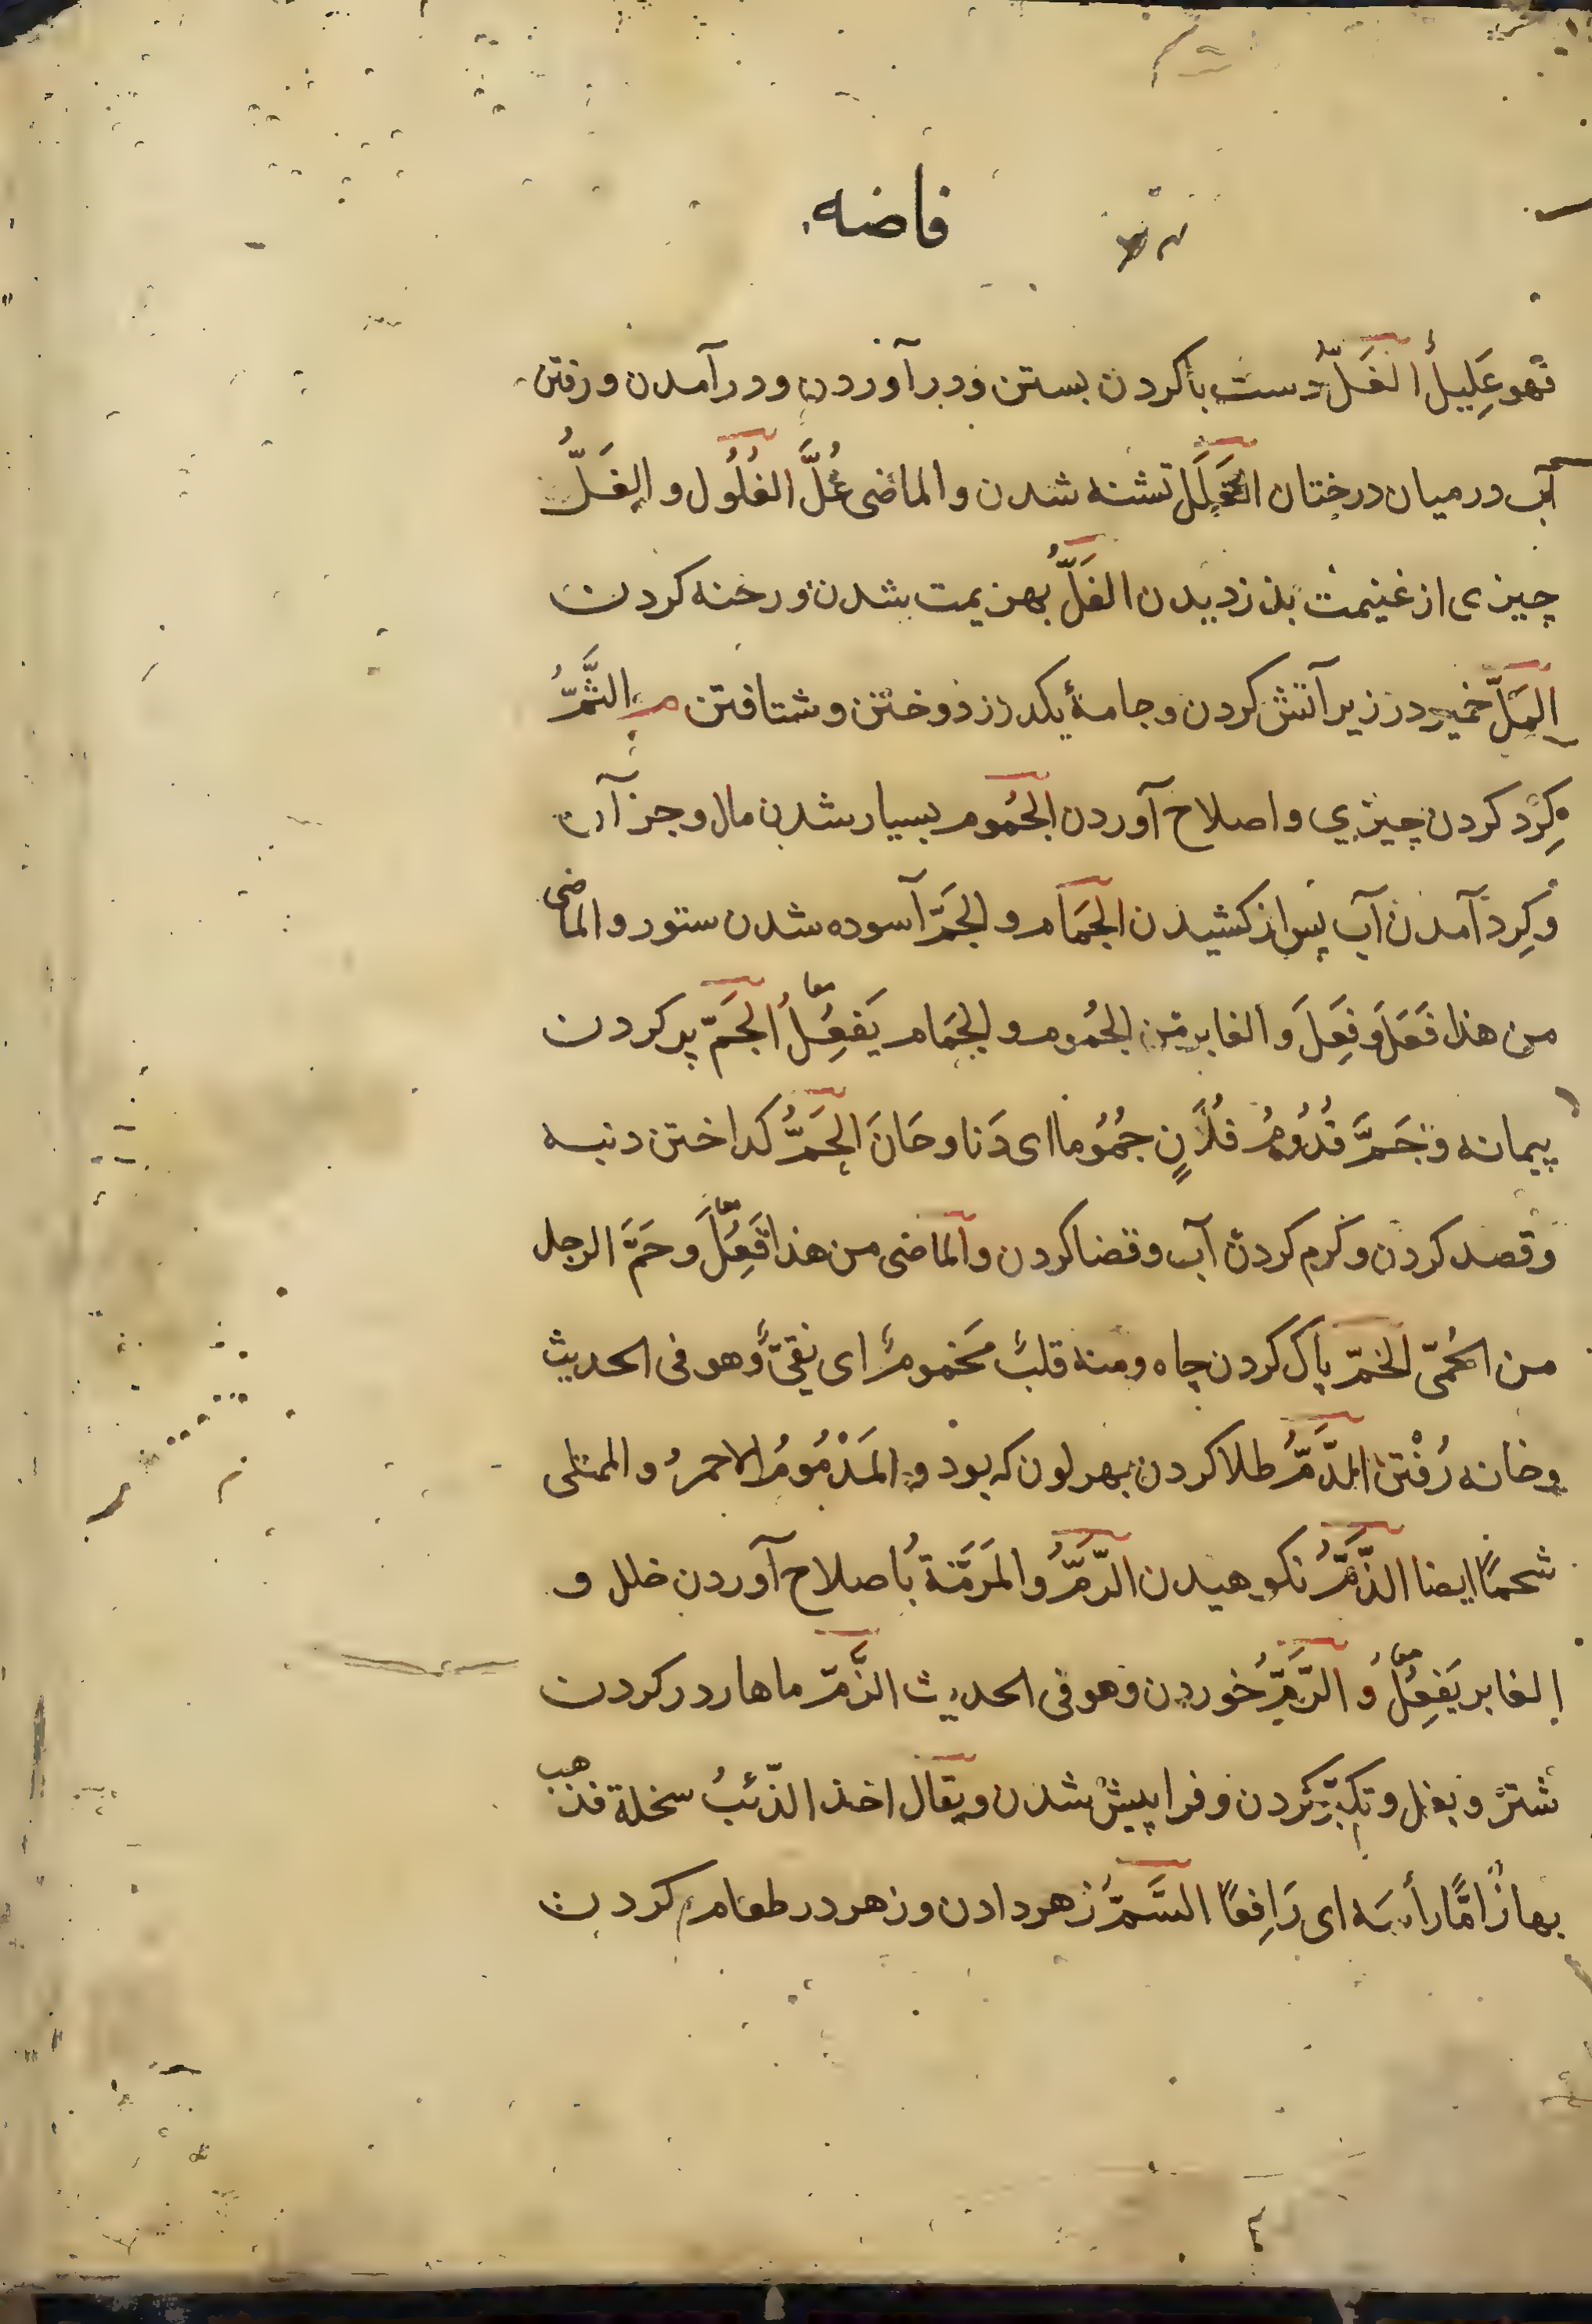 فاضه
فهو عَلِيلٌ الغَلُّ دست باکردن بستن و در آوردن و در آمدن و رفتن
آب در میان درختان الغَلَل تشنه شدن و الماضى غُلَّ الغُلُول و الغَلُّ
چیزی از غنیمت بدزدیدن الفَلُّ بهزیمت شدن و رخنه کردن
المَلّ خمیر در زیر آتش کردن و جامۀ یکدرز دوختن و شتافتن م الثَّمُّ
کِرد کردن چیزي و اصلاح آوردن الجُمُوم بسیار شدن مال و جز آن
و کِرد آمدن آب پس از کشیدن الجَمَام و الجَمّ آسوده شدن ستور و الماضى
من هذا فَعَلَ و فَعِلَ و الغابر من الجُمُوم و الجَمَام يَفعِلُ معا الجَمّ پر کردن
پیمانه و جَمَّ قُدُومُ فُلَانٍ جُمُوما اى دَنا و حَانَ الحَمُّ کداختن دنبه
و قصد کردن و کرم کردن آب و قضا کردن و الماضى من هذا فَعِلَ معا و حَمَّ الرجل
من الحُمّى الخَمّ پاک کردن چاه و منه قلبٌ مَخمومٌ اى نقىٌّ و هو فى الحديث
و خانه رُفْتن الدَّمُّ طلا کردن بهر لون که بود و المَدْمُومُ الاحمرُ و الممتلى
شحمًا ايضا الذَّمُّ نکوهیدن الرَّمُّ و المَرَمَّة باصلاح آوردن خلل و
الغابر يَفعِلُ معا و الرَّمُّ خوردن و هو فى الحديث الزَّمّ ماهار در کردن
شتر و بغل و تکبّر کردن و فرا پیش شدن و يقال اخذ الذّئبُ سخلة فذهب
بها زَامًّا رأسَه اى رَافِعًا السَّمُّ زهر دادن و زهر در طعام کردن